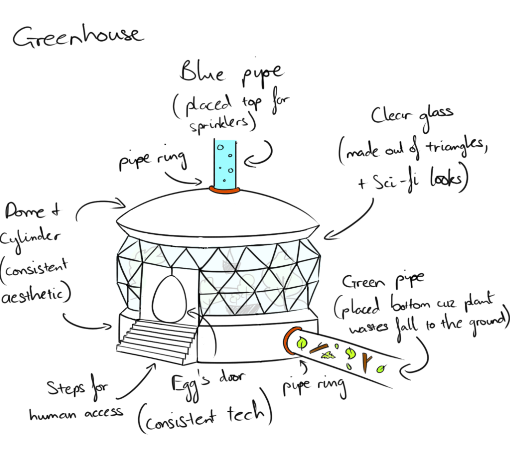 Greenhouse
Blue pipe
(placed top for
sprinklers)
Clear glass
(made out of triangles,
+ Sci-fi looks)
pipe ring
Dome +
Cylinder
(consistent
aesthetic)
Green pipe
(placed bottom cuz plant
wastes fall to the ground)
Steps for
human access
Egg's door
(consistent tech)
pipe ring